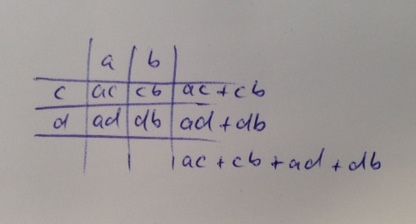 a b
c ac cb ac + cb
d ad db ad + db
ac + cb + ad + db